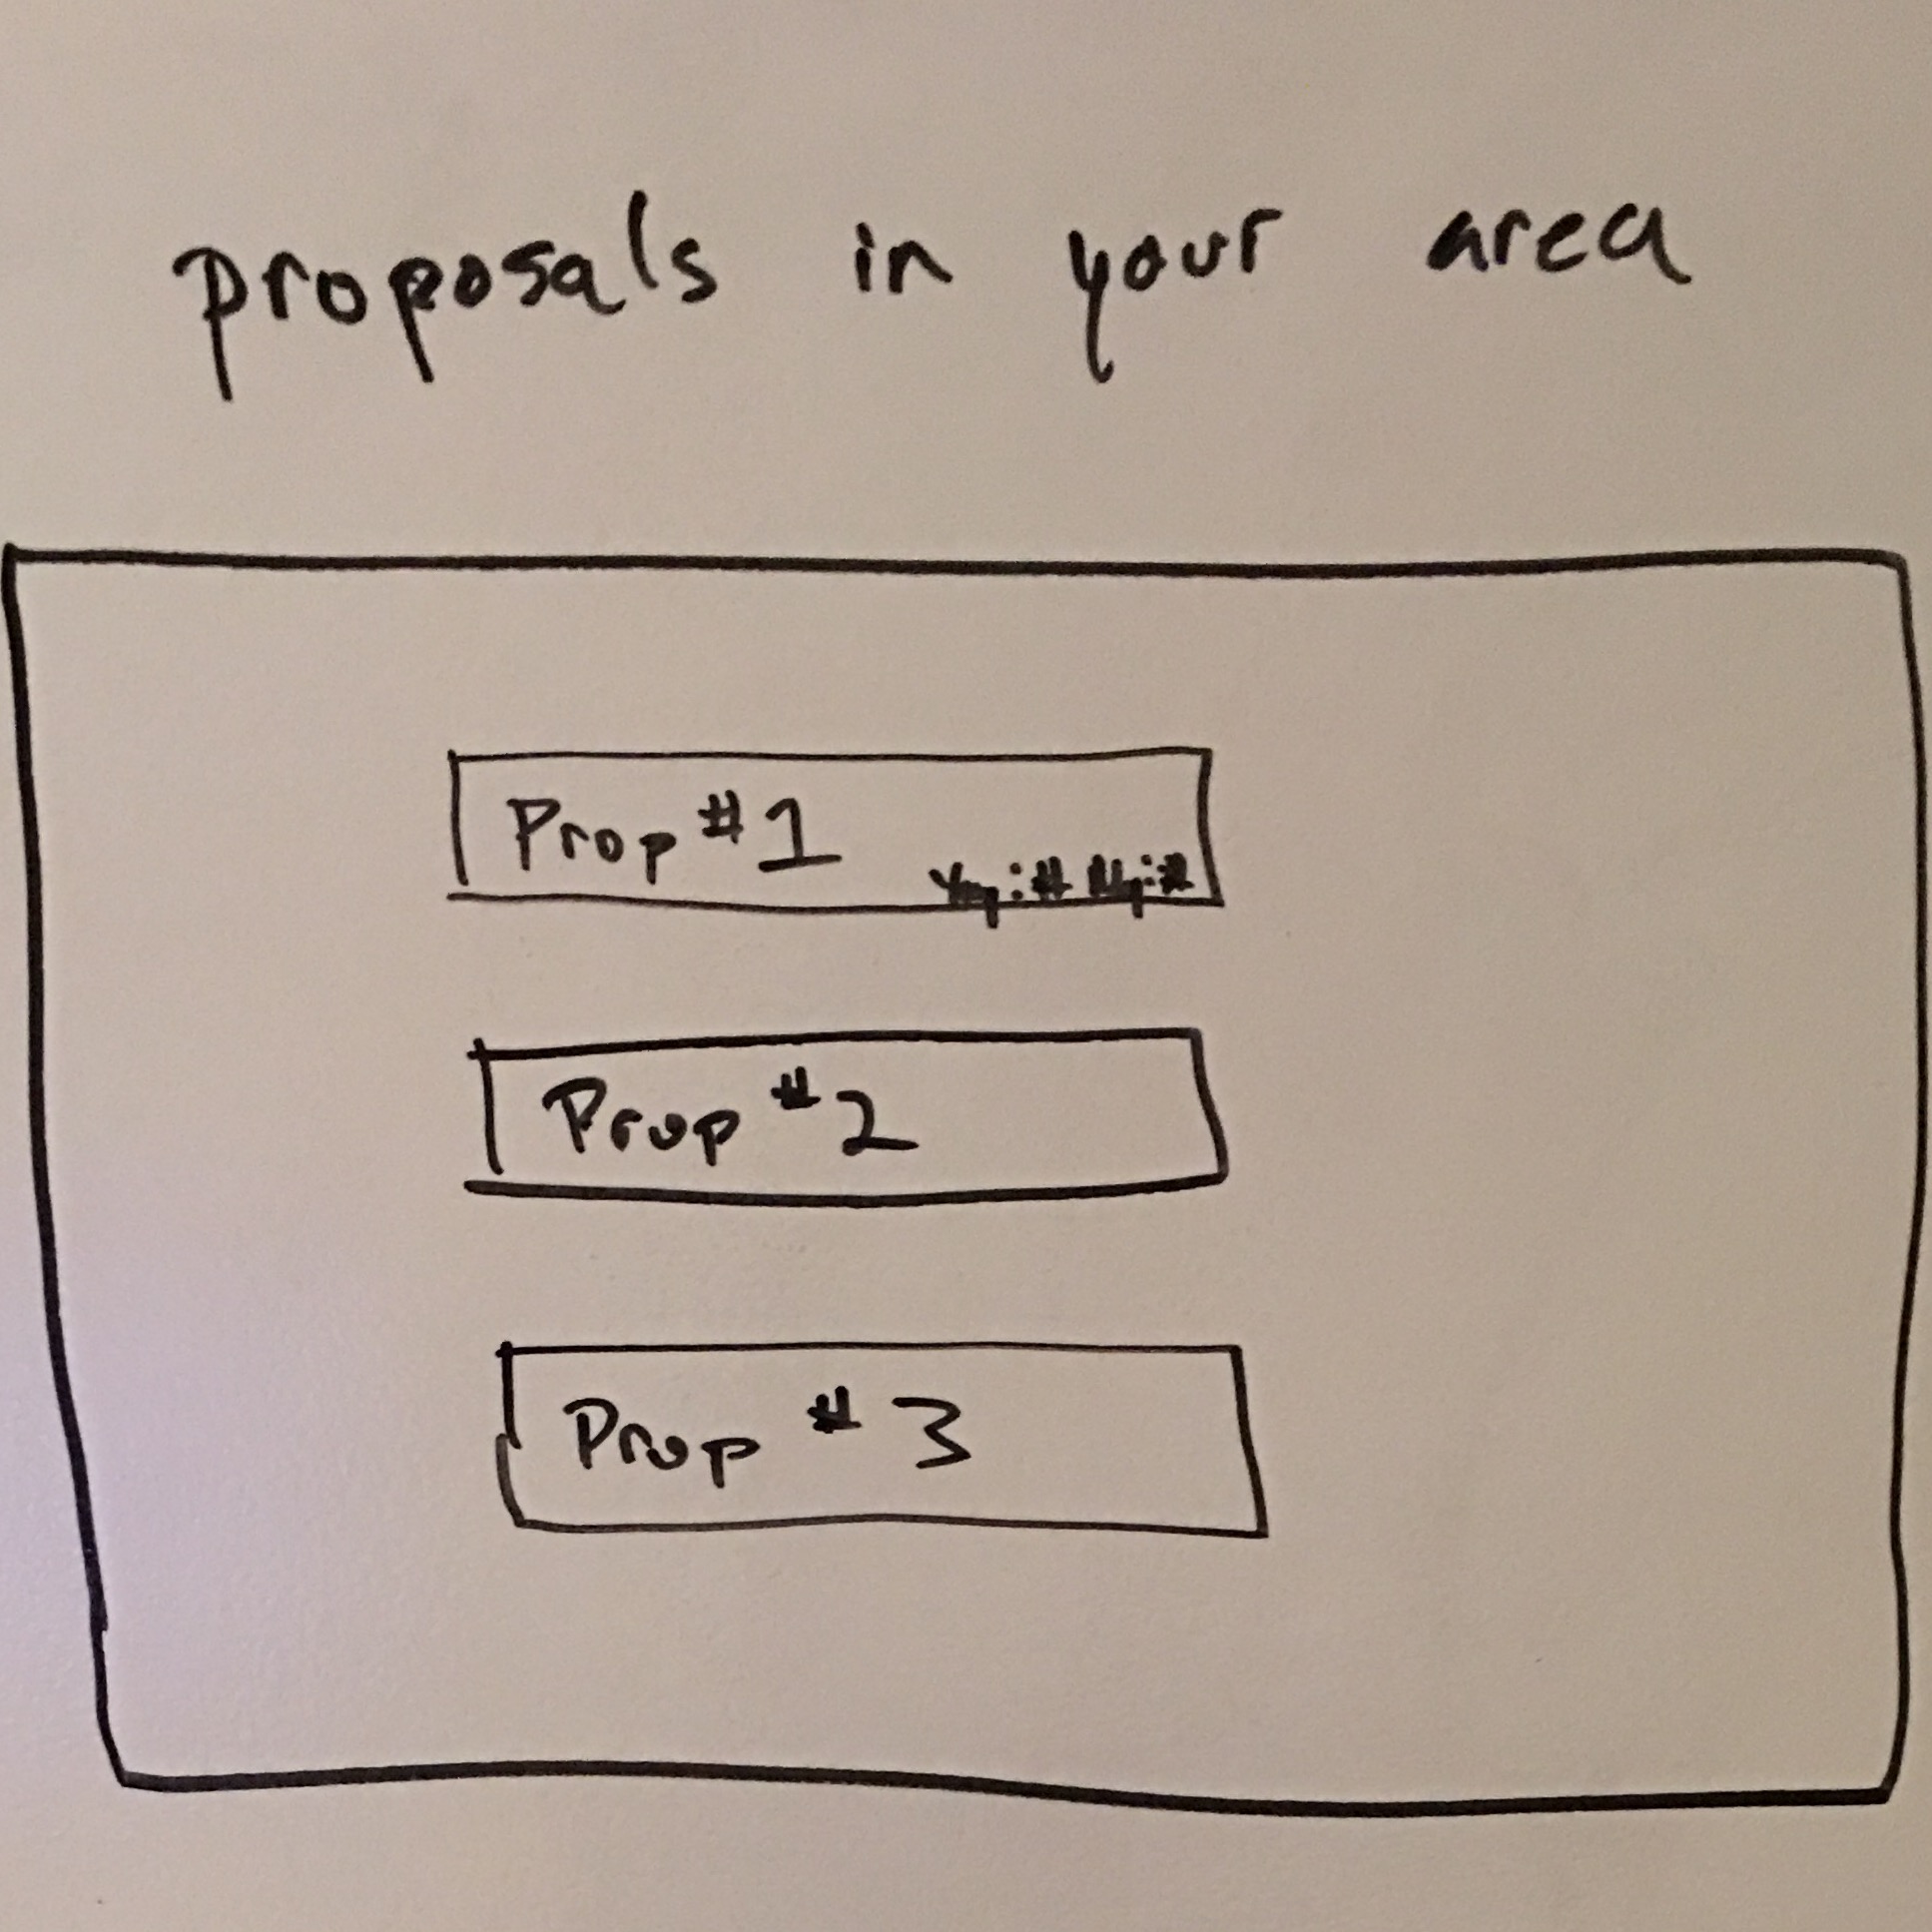 proposals in your area
Prop #1
Yay:# Nay:#
Prop #2
Prop #3